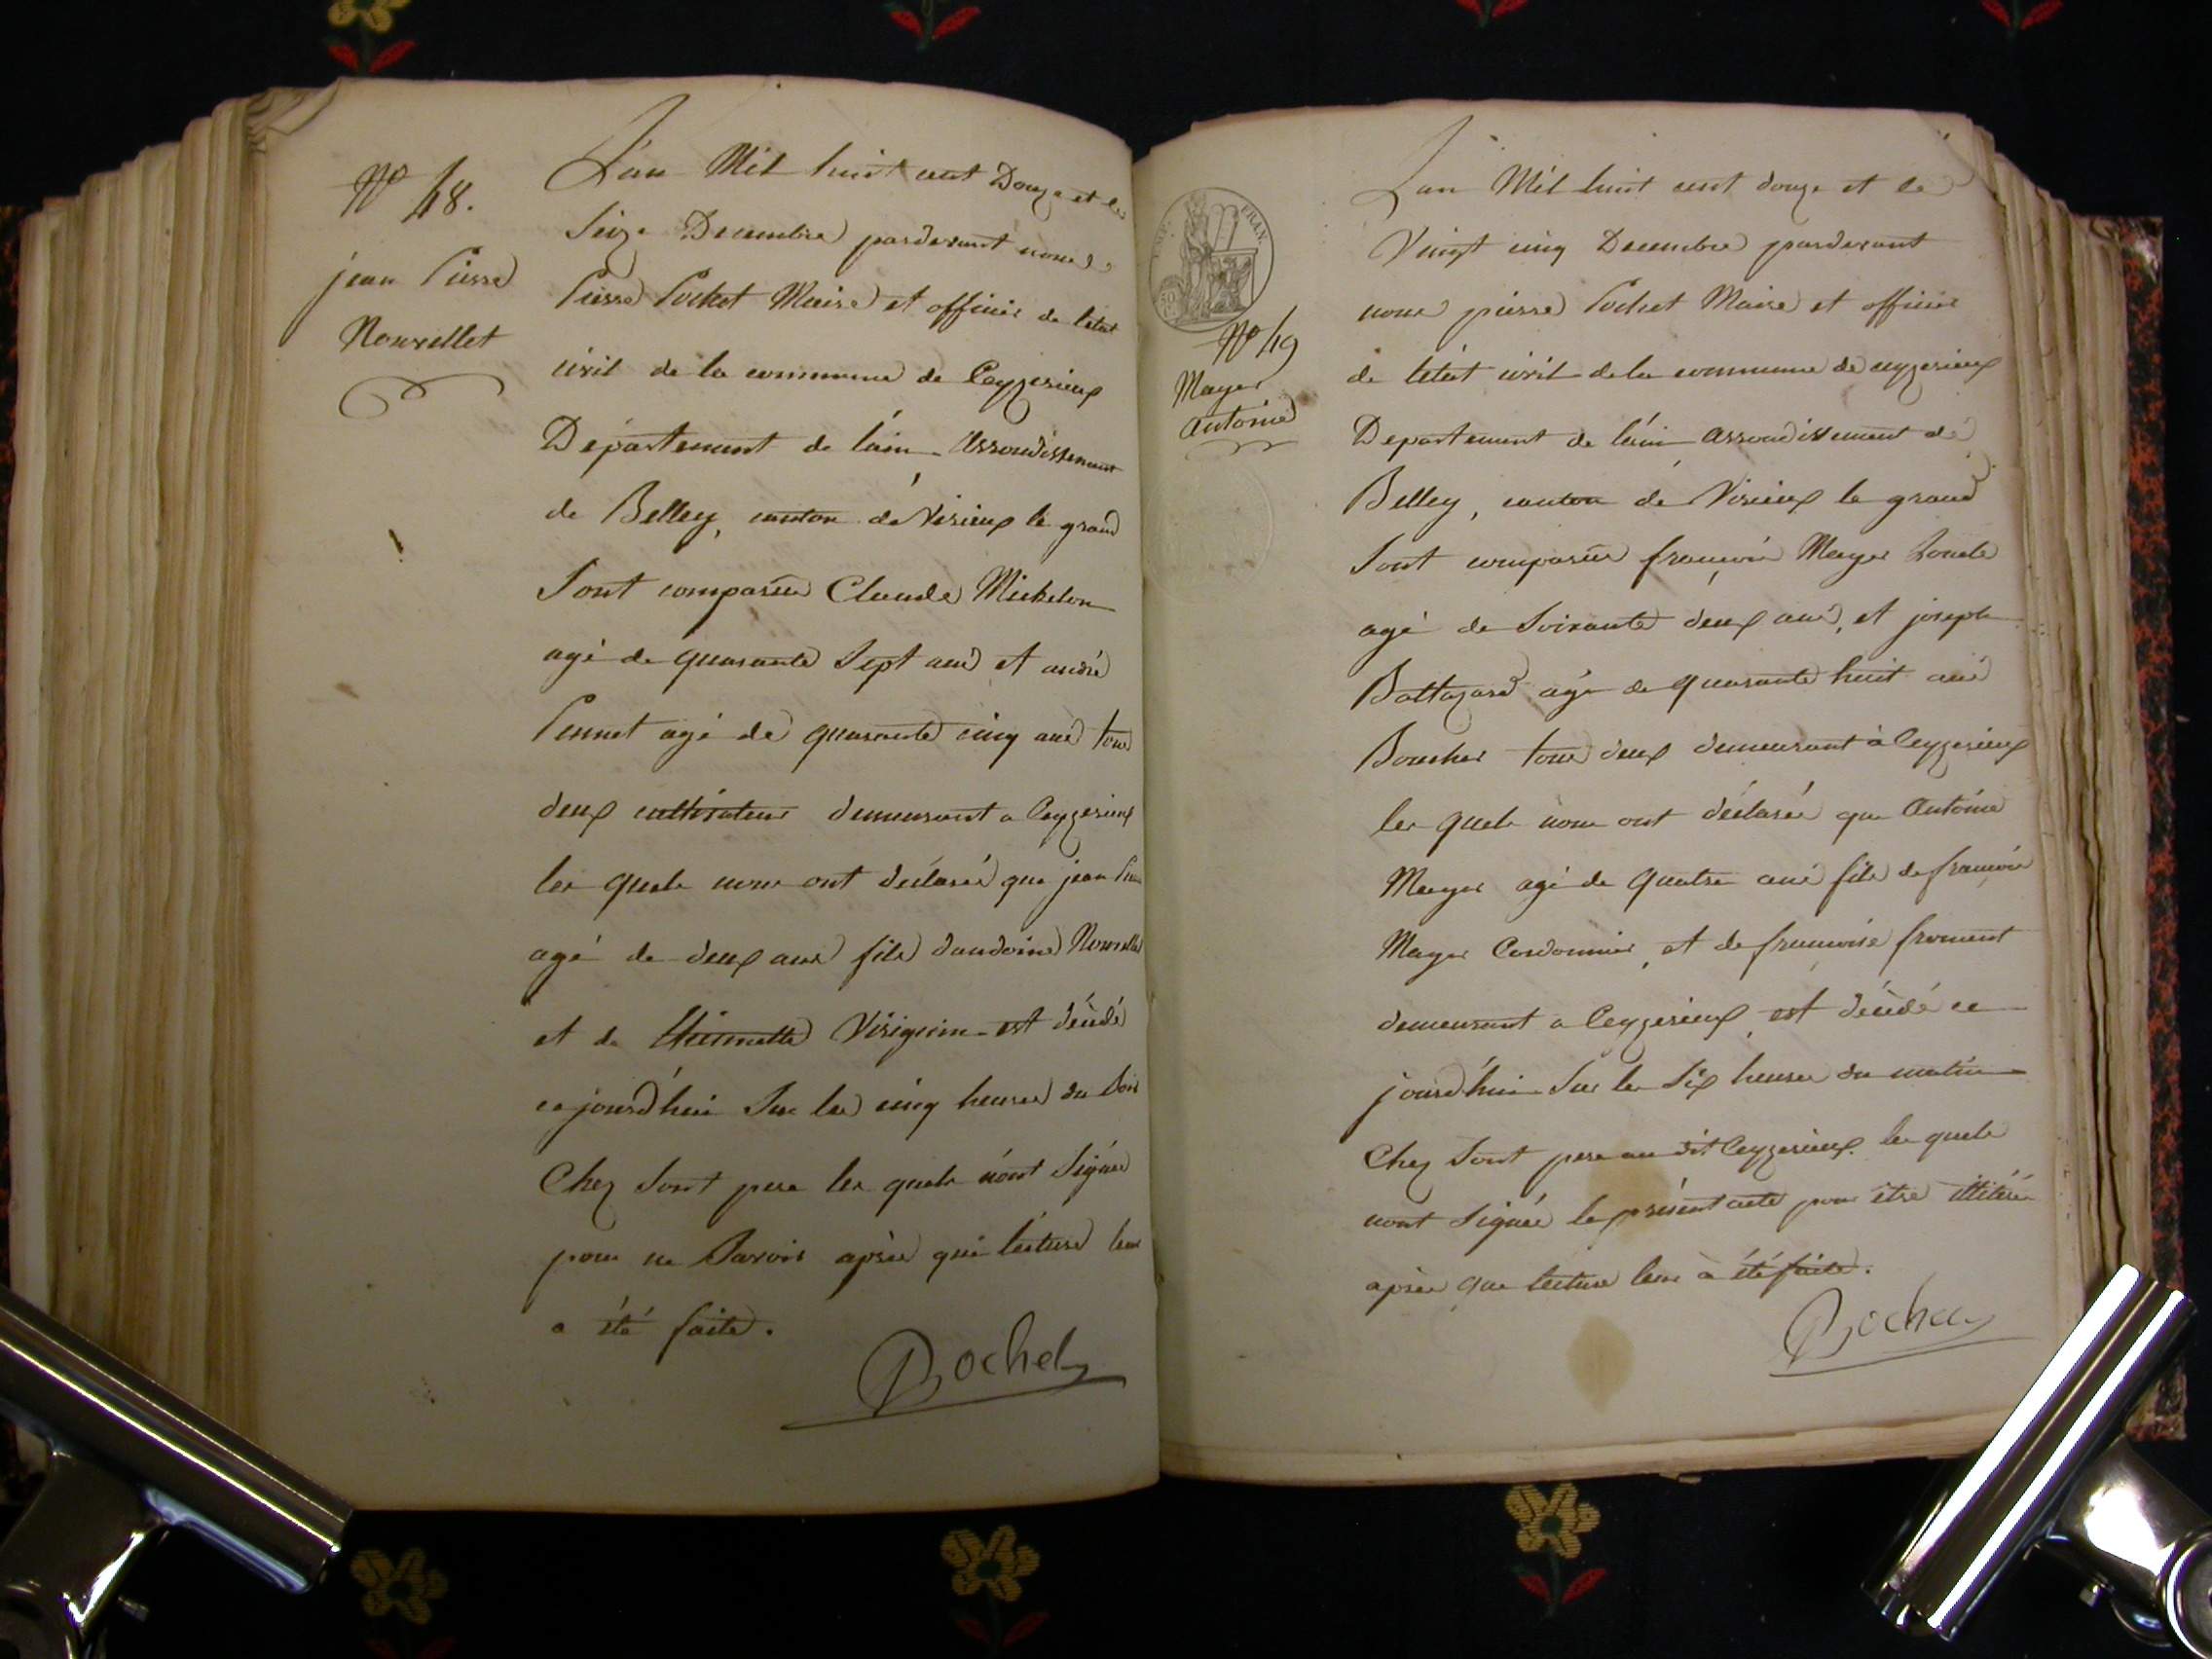 N° 48.
jean Pierre
Nouvellet
L'an Mil huit cent Douze et le
Seize Decembre pardevant nous
Pierre Pochet Maire et officier de letat
civil de la commune de Ceyzerieux
Département de lain Arrondissement
de Belley, canton de Virieux le grand
Sont comparus Claude Michelon
agé de quarante Sept ans et andré
Pennet agé de quarante cinq ans tous
deux cultivateur demeurant a Ceyzerieux
les quels nous ont déclarés que jean Pierre
agé de deux ans fils dandoine Nouvellet
et de Virignin est décédé
ce jourd'hui Sur les cinq heures du Soir
Chez Sont pere les quels n'ont Signés
pour ne Savoir après que lecture leur
a été faite.
Pochet
IMP. FRAN.
N° 49
Mayer
antoine
L'an Mil huit cent douze et le
Vingt cinq Decembre pardevant
nous pierre Pochet Maire et officier
de létat civil de la commune de ceyzerieux
Departement de lain arrondissement de
Belley, canton de Virieux le grand
Sont comparus françois Mayer oncle
agé de Soixante deux ans, et joseph
Baltazard agé de quarante huit ans
Boucher tous deux demeurant à Ceyzerieux
les quels nous ont déclarés que Antoine
Mayer agé de quatre ans fils de françois
Mayer Cordonnier, et de françoise froment
demeurant a Ceyzerieux, est décédé ce
jourd'hui Sur les Six heures du matin
Chez Sont pere au dit Ceyzerieux. les quels
nont Signés le présent acte pour être illitérés
après que lecture leur à été faite.
Pochet